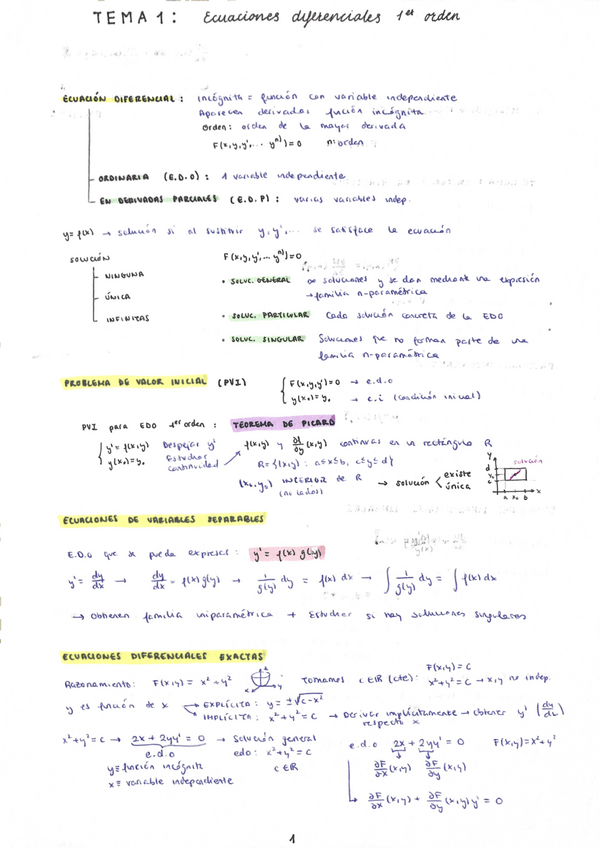 TEMA 1: Ecuaciones diferenciales 1er orden
ECUACIÓN DIFERENCIAL: Incógnita = función con variable independiente
Aparecen derivadas función incógnita
Orden: orden de la mayor derivada
F(x,y,y',... yⁿ)=0 n:orden
ORDINARIA (E.D.O): 1 variable independiente
EN DERIVADAS PARCIALES (E.D.P): varias variables indep.
y=f(x) → solución si al sustituir y, y',... se satisface la ecuación
SOLUCIÓN F(x,y,y',... yⁿ)=0
NINGUNA
ÚNICA
INFINITAS
• SOLUC. GENERAL ∞ soluciones y se dan mediante una expresión
→ familia n-paramétrica
• SOLUC. PARTICULAR Cada solución concreta de la EDO
• SOLUC. SINGULAR Soluciones que no forman parte de una
familia n-paramétrica
PROBLEMA DE VALOR INICIAL (PVI) { F(x,y,y')=0 → e.d.o
y(x₀)=y₀ → c.i (condición inicial)
PVI para EDO 1er orden: TEOREMA DE PICARD
{ y'=f(x,y) Despejar y' f(x,y) y ∂f/∂y (x,y) continuas en un rectángulo R
y(x₀)=y₀ Estudiar continuidad R={(x,y): a≤x≤b, c≤y≤d}
(x₀,y₀) INTERIOR de R (no lados) → solución < existe única
solución
y d y₀ c a x₀ b x
ECUACIONES DE VARIABLES SEPARABLES
E.D.O que se pueda expresar: y' = f(x) g(y)
y' = dy/dx → dy/dx = f(x)g(y) → 1/g(y) dy = f(x) dx → ∫ 1/g(y) dy = ∫ f(x) dx
→ Obtienen familia uniparamétrica + Estudiar si hay soluciones singulares
ECUACIONES DIFERENCIALES EXACTAS
Razonamiento: F(x,y) = x²+y² Tomamos c∈ℝ (cte): F(x,y)=C
x²+y²=C → x,y no indep.
y es función de x → EXPLÍCITA: y = ±√C-x²
IMPLÍCITA: x²+y²=C → Derivar implícitamente respecto x → obtener y' (dy/dx)
x²+y²=C → 2x+2yy'=0 → Solución general
e.d.o edo: x²+y²=C
y=función incógnita c∈ℝ
x=variable independiente
e.d.o 2x+2yy'=0 F(x,y)=x²+y²
∂F/∂x (x,y) ∂F/∂y (x,y)
→ ∂F/∂x (x,y) + ∂F/∂y (x,y)y' = 0
1